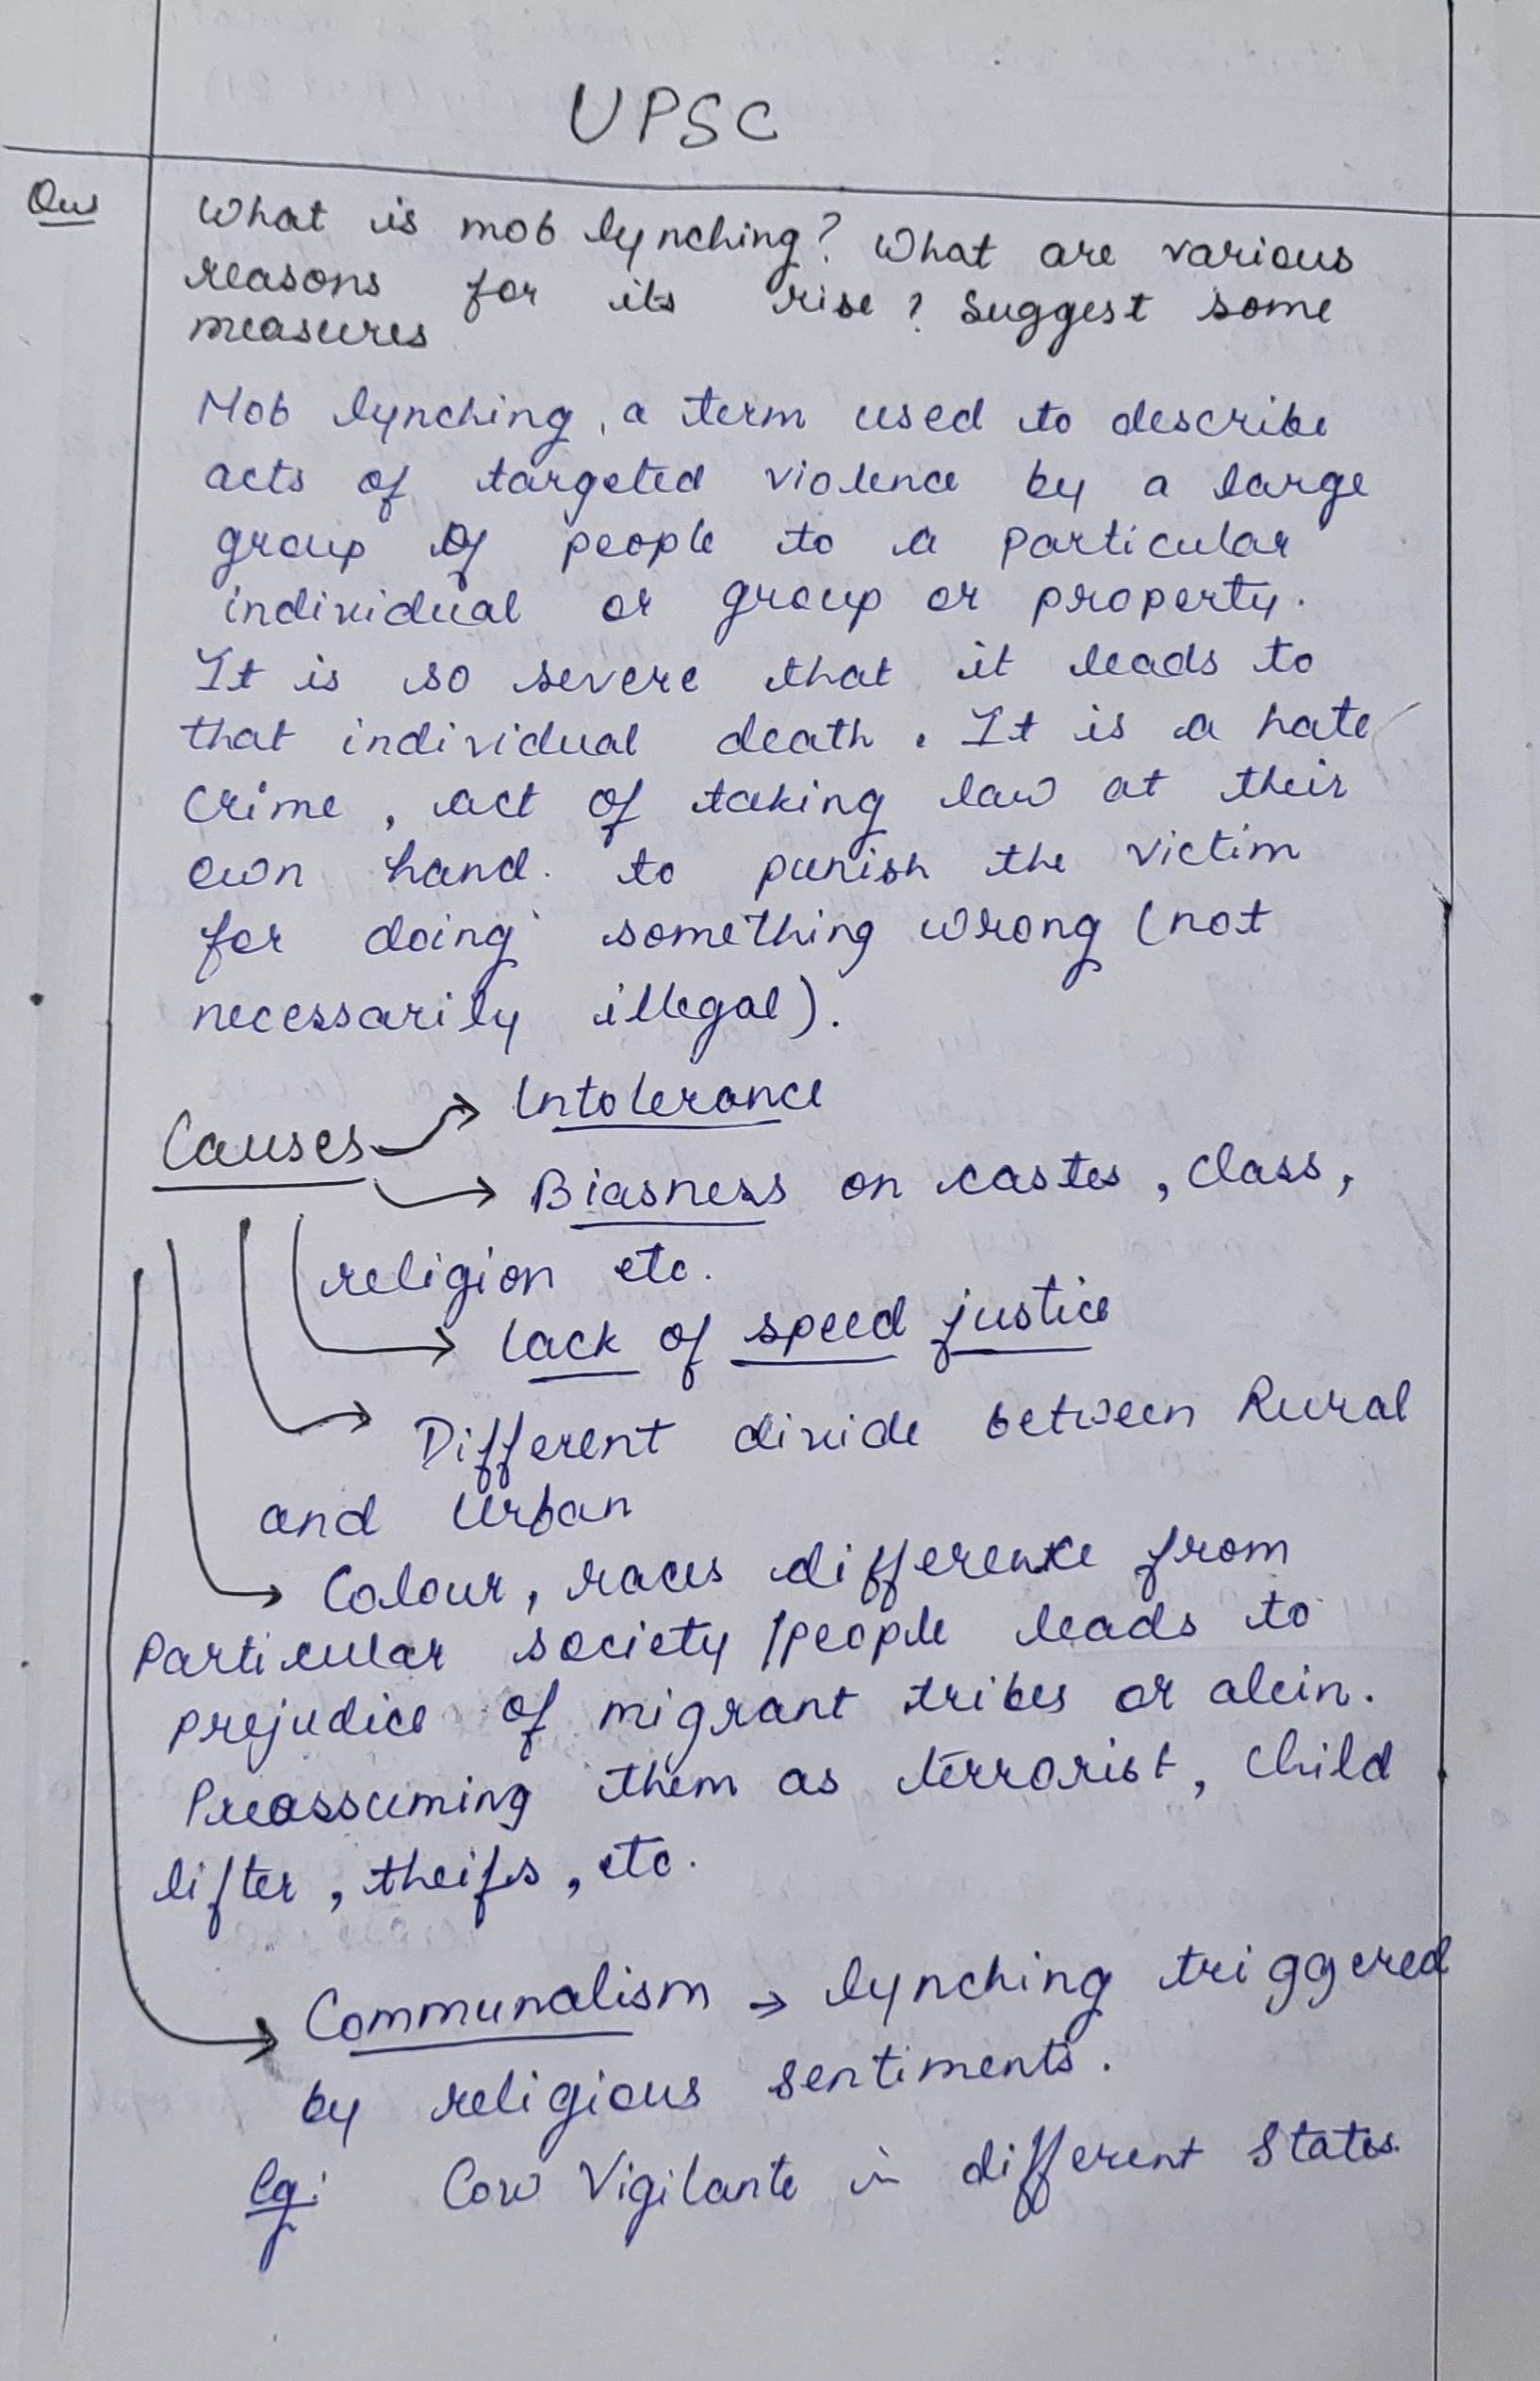 UPSC
Ques
What is mob lynching? What are various
reasons for its rise? Suggest some
measures
Mob lynching, a term used to describe
acts of targeted violence by a large
group of people to a particular
individual or group or property.
It is so severe that it leads to
that individual death. It is a hate
crime, act of taking law at their
own hand. to punish the victim
for doing something wrong (not
necessarily illegal).
Causes → Intolerance
→ Biasness on castes, class,
religion etc.
→ lack of speed justice
→ Different divide between Rural
and Urban
→ Colour, races difference from
Particular society/people leads to
prejudice of migrant tribes or alein.
Preassuming them as terrorist, child
lifter, theifs, etc.
→ Communalism → lynching triggered
by religious sentiments.
Eg: Cow Vigilante in different States.